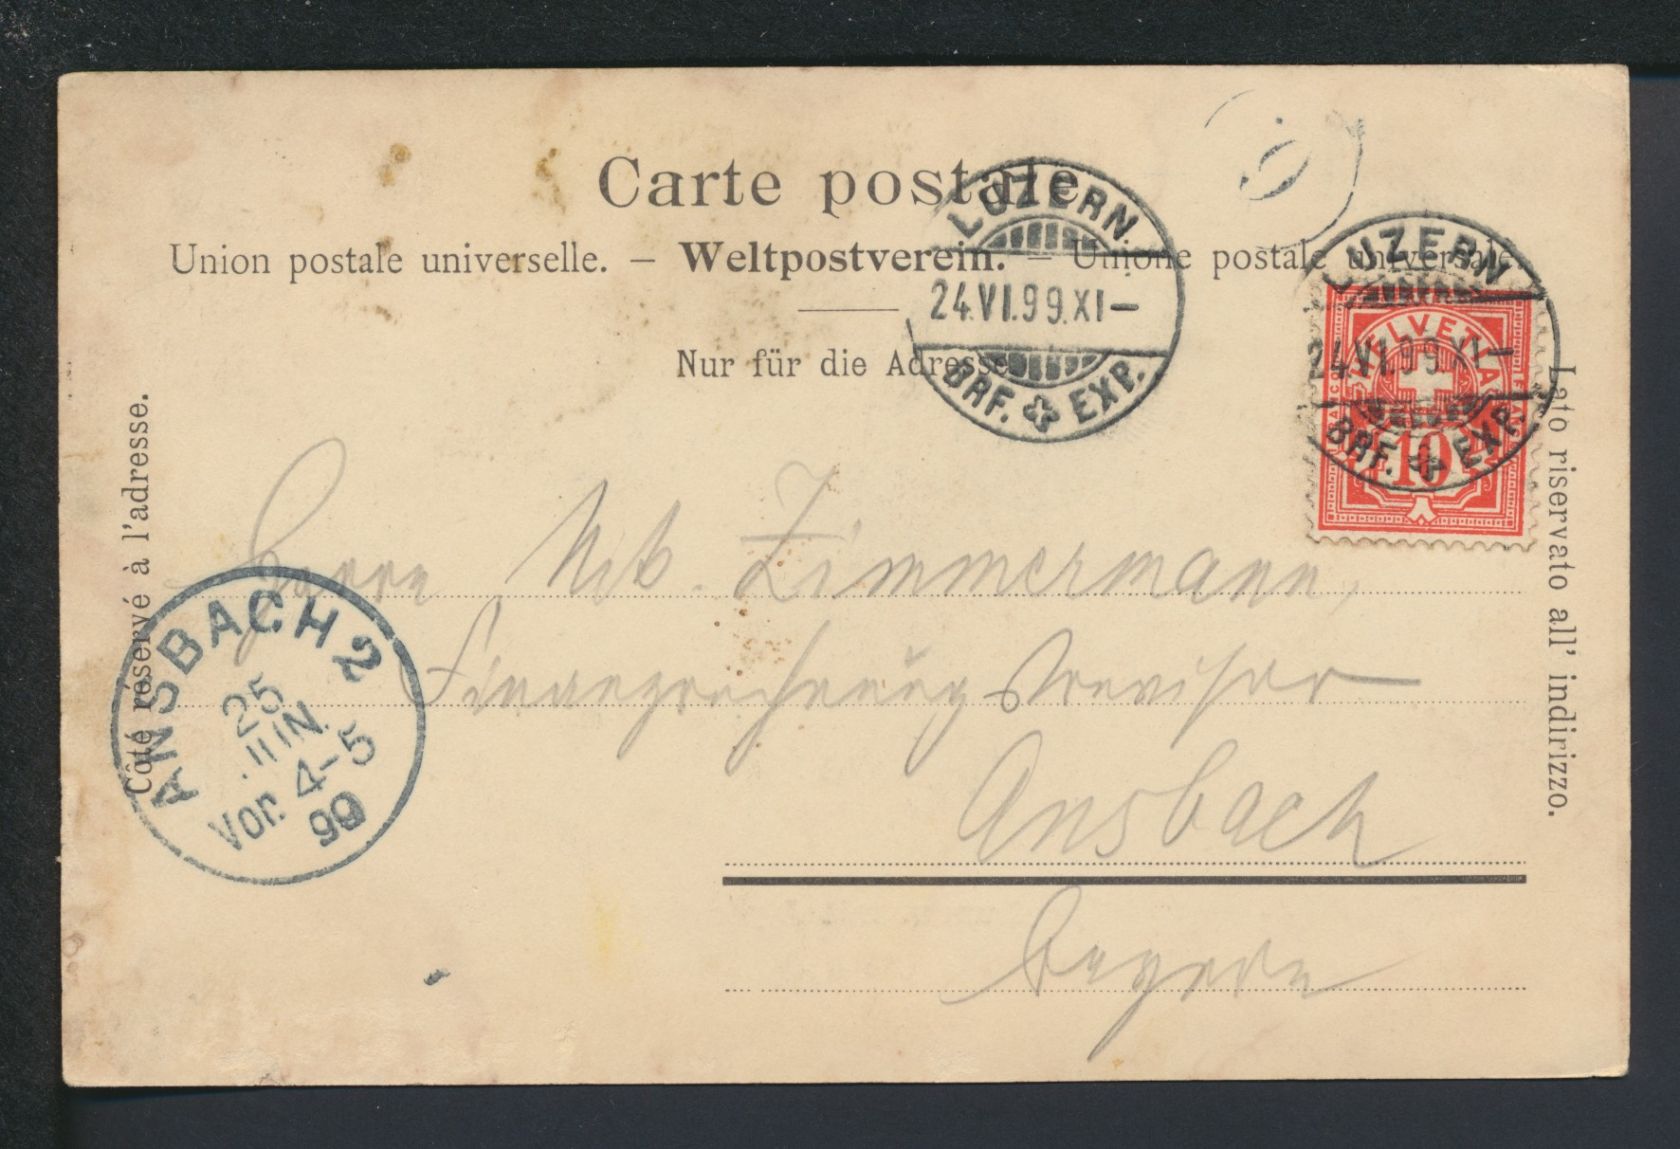 Carte postale
Union postale universelle. – Weltpostverein. – Unione postale universale.
Nur für die Adresse
Côté réservé à l'adresse.
Lato riservato all' indirizzo.
LUZERN.
24.VI.99.XI–
BRF. EXP.
LUZERN
24.VI.99.XI–
BRF. EXP.
HELVETIA
FRANCO
10
Herrn Zimmermann,
Finanzrechnungsrevisor
Ansbach
Bayern
ANSBACH 2
25
JUN.
Vor. 4-5
99